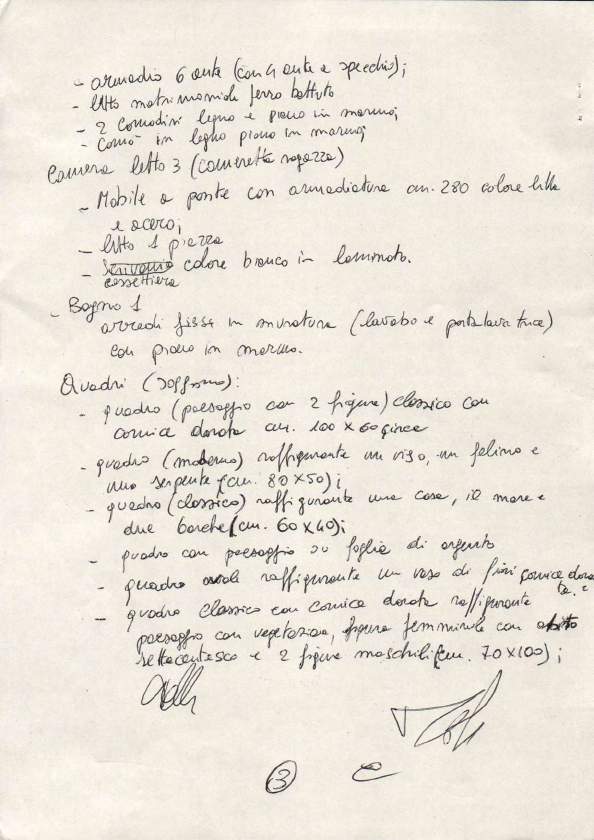 - armadio 6 ante (con 4 ante a specchio);
- letto matrimoniale ferro battuto
- 2 comodini legno e piano in marmo;
- comò in legno piano in marmo;
Camera letto 3 (cameretta ragazza)
- Mobile a ponte con armadiatura cm. 280 colore lilla
e acero;
- letto 1 piazza
- scrivania colore bianco in laminato.
cassettiera
- Bagno 1
arredi fissi in muratura (lavabo e portalavatrice)
con piano in marmo.
Quadri (soggiorno):
- quadro (paesaggio con 2 figure) classico con
cornice dorata cm. 100 x 60 circa
- quadro (moderno) raffigurante un viso, un felino e
uno serpente (cm. 80 x 50);
- quadro (classico) raffigurante una casa, il mare e
due barche (cm. 60 x 40);
- quadro con paesaggio su foglia di argento
- quadro ovale raffigurante un vaso di fiori cornice dora
ta. e
- quadro classico con cornice dorata raffigurante
paesaggio con vegetazione, figura femminile con abito
settecentesco e 2 figure maschili (cm. 70 x 100);
3